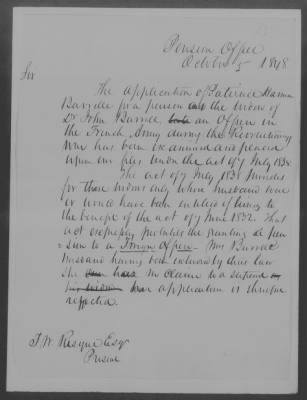 Pension Office
October 5 1848
Sir
The application of Patience Hanna
Barzille for a pension as the widow of
Dr John Barzille an Officer in
the French Army during the Revolutionary
War has been examined and placed
upon our files under the act of 7 July 1838
The act of 7 July 1838 provides
for those widows only whose husband was
or would have been entitled if living to
the benefit of the act of 7 June 1832. That
act expressly precludes the granting a pen
sion to a Foreign Officer. Mrs
husband having been excluded by this law
She no claim to a
application is therefore
rejected
T. W. Risque Esqr
Present